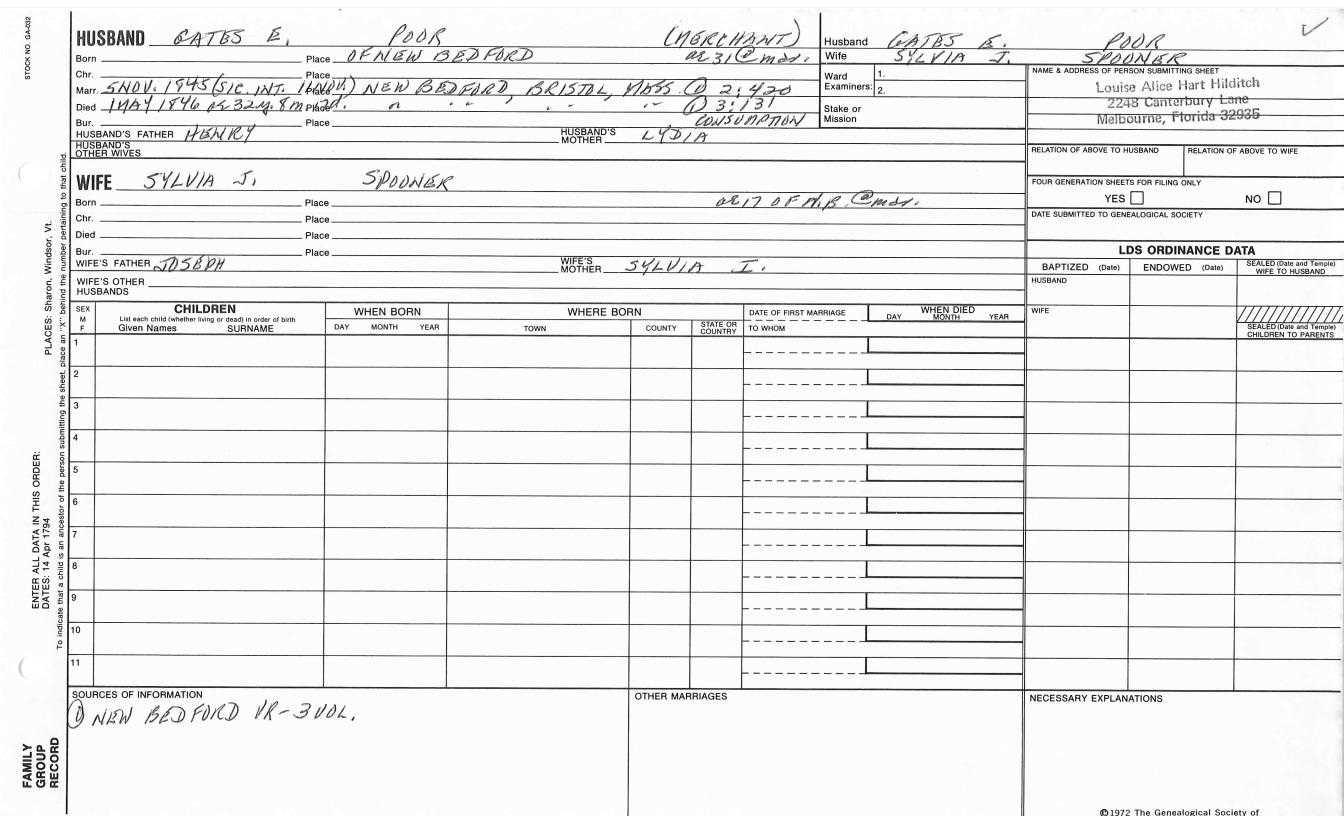 STOCK NO. GA-032
HUSBAND GATES E. POOR (MERCHANT)
Born Place OF NEW BEDFORD ae 31 @ mar.
Chr. Place
Marr. 5 NOV. 1845 (SIC. INT. 11 NOV.) Place NEW BEDFORD, BRISTOL, MASS. ① 2:420
Died 1 MAY 1846 ae 32y. 8m. 2d. Place " " " " ① 3:131
Bur. Place CONSUMPTION
HUSBAND'S FATHER HENRY HUSBAND'S MOTHER LYDIA
HUSBAND'S OTHER WIVES
WIFE SYLVIA J. SPOONER
Born Place ae 17 OF N.B. @ mar.
Chr. Place
Died Place
Bur. Place
WIFE'S FATHER JOSEPH WIFE'S MOTHER SYLVIA I.
WIFE'S OTHER HUSBANDS
Husband GATES E. POOR
Wife SYLVIA J. SPOONER
Ward Examiners: 1.
2.
Stake or Mission
NAME & ADDRESS OF PERSON SUBMITTING SHEET
Louise Alice Hart Hilditch
2248 Canterbury Lane
Melbourne, Florida 32935
RELATION OF ABOVE TO HUSBAND RELATION OF ABOVE TO WIFE
FOUR GENERATION SHEETS FOR FILING ONLY
YES NO
DATE SUBMITTED TO GENEALOGICAL SOCIETY
LDS ORDINANCE DATA
BAPTIZED (Date) ENDOWED (Date) SEALED (Date and Temple) WIFE TO HUSBAND
HUSBAND
WIFE
SEALED (Date and Temple) CHILDREN TO PARENTS
SEX M F
CHILDREN
List each child (whether living or dead) in order of birth
Given Names SURNAME
WHEN BORN
DAY MONTH YEAR
WHERE BORN
TOWN COUNTY STATE OR COUNTRY
DATE OF FIRST MARRIAGE
TO WHOM
WHEN DIED
DAY MONTH YEAR
1
2
3
4
5
6
7
8
9
10
11
SOURCES OF INFORMATION
① NEW BEDFORD VR-3 VOL.
OTHER MARRIAGES
NECESSARY EXPLANATIONS
©1972 The Genealogical Society of
PLACES: Sharon, Windsor, Vt.
To indicate that a child is an ancestor of the person submitting the sheet, place an "X" behind the number pertaining to that child.
ENTER ALL DATA IN THIS ORDER:
DATES: 14 Apr 1794
FAMILY GROUP RECORD